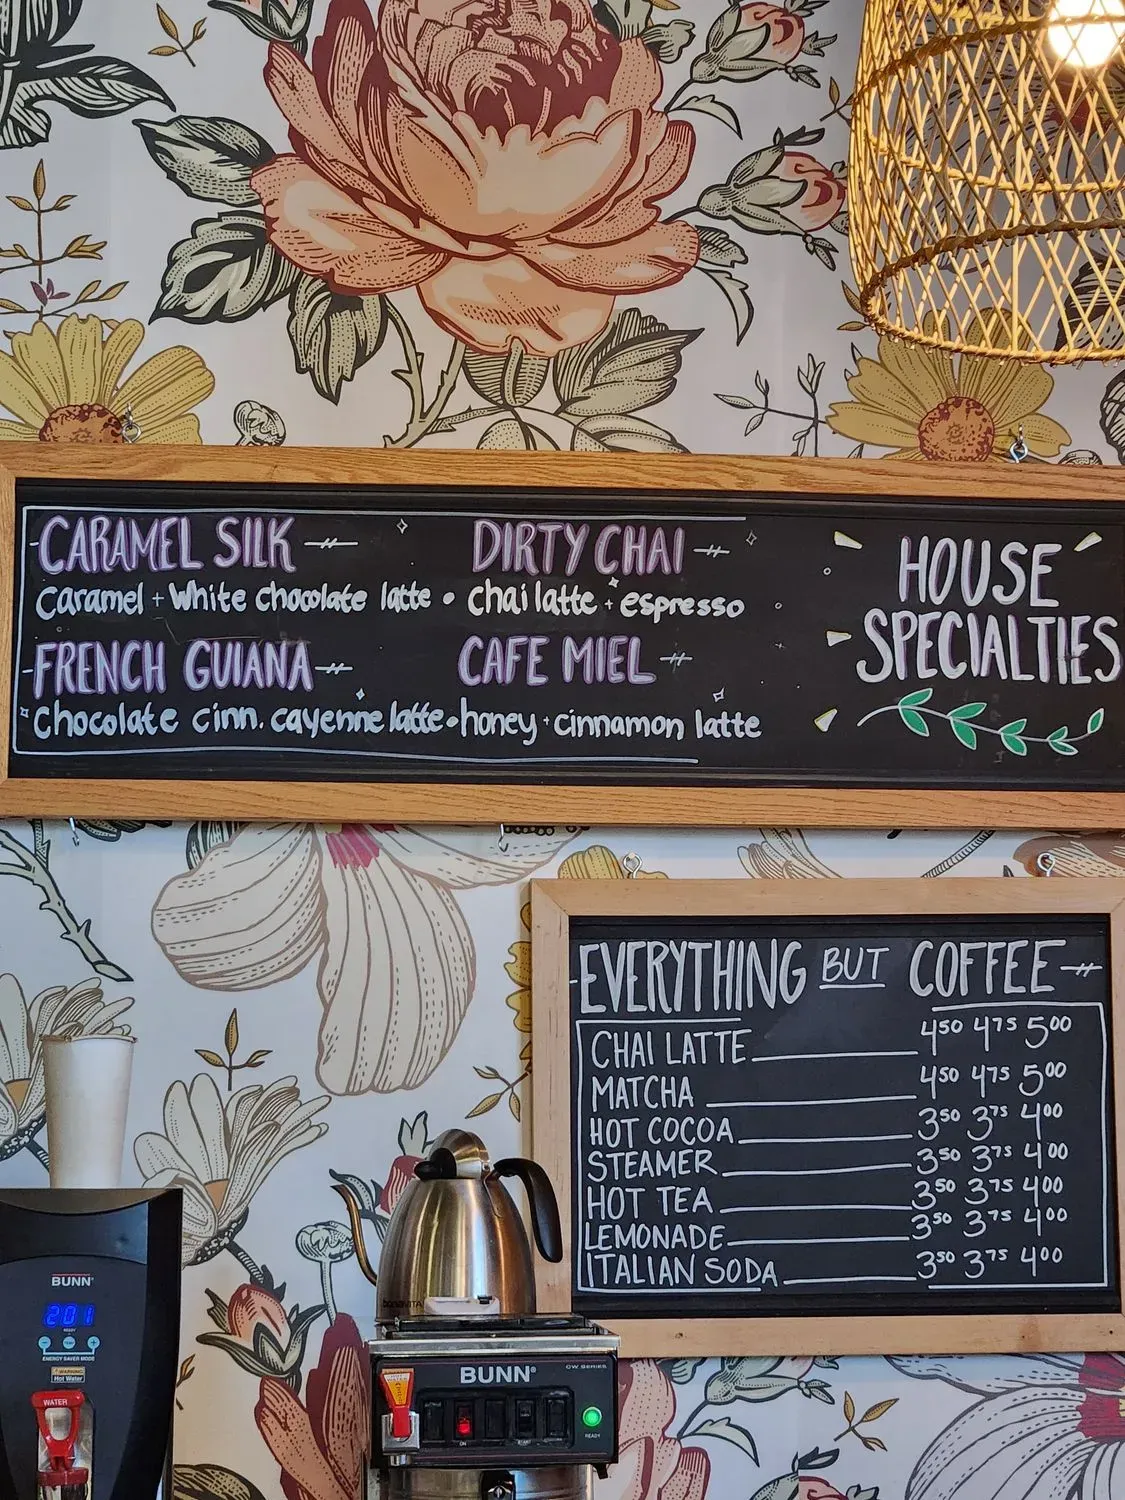 CARAMEL SILK
caramel + White chocolate latte •
DIRTY CHAI
chai latte + espresso
FRENCH GUIANA
Chocolate cinn. cayenne latte •
CAFE MIEL
honey + cinnamon latte
HOUSE
SPECIALTIES
EVERYTHING BUT COFFEE
CHAI LATTE 4.50 4.75 5.00
MATCHA 4.50 4.75 5.00
HOT COCOA 3.50 3.75 4.00
STEAMER 3.50 3.75 4.00
HOT TEA 3.50 3.75 4.00
LEMONADE 3.50 3.75 4.00
ITALIAN SODA 3.50 3.75 4.00
BUNN®
201
READY
ENERGY SAVER MODE
WARNING
Hot Water
WATER
bonavita
BUNN®
CW SERIES
ON
START
READY